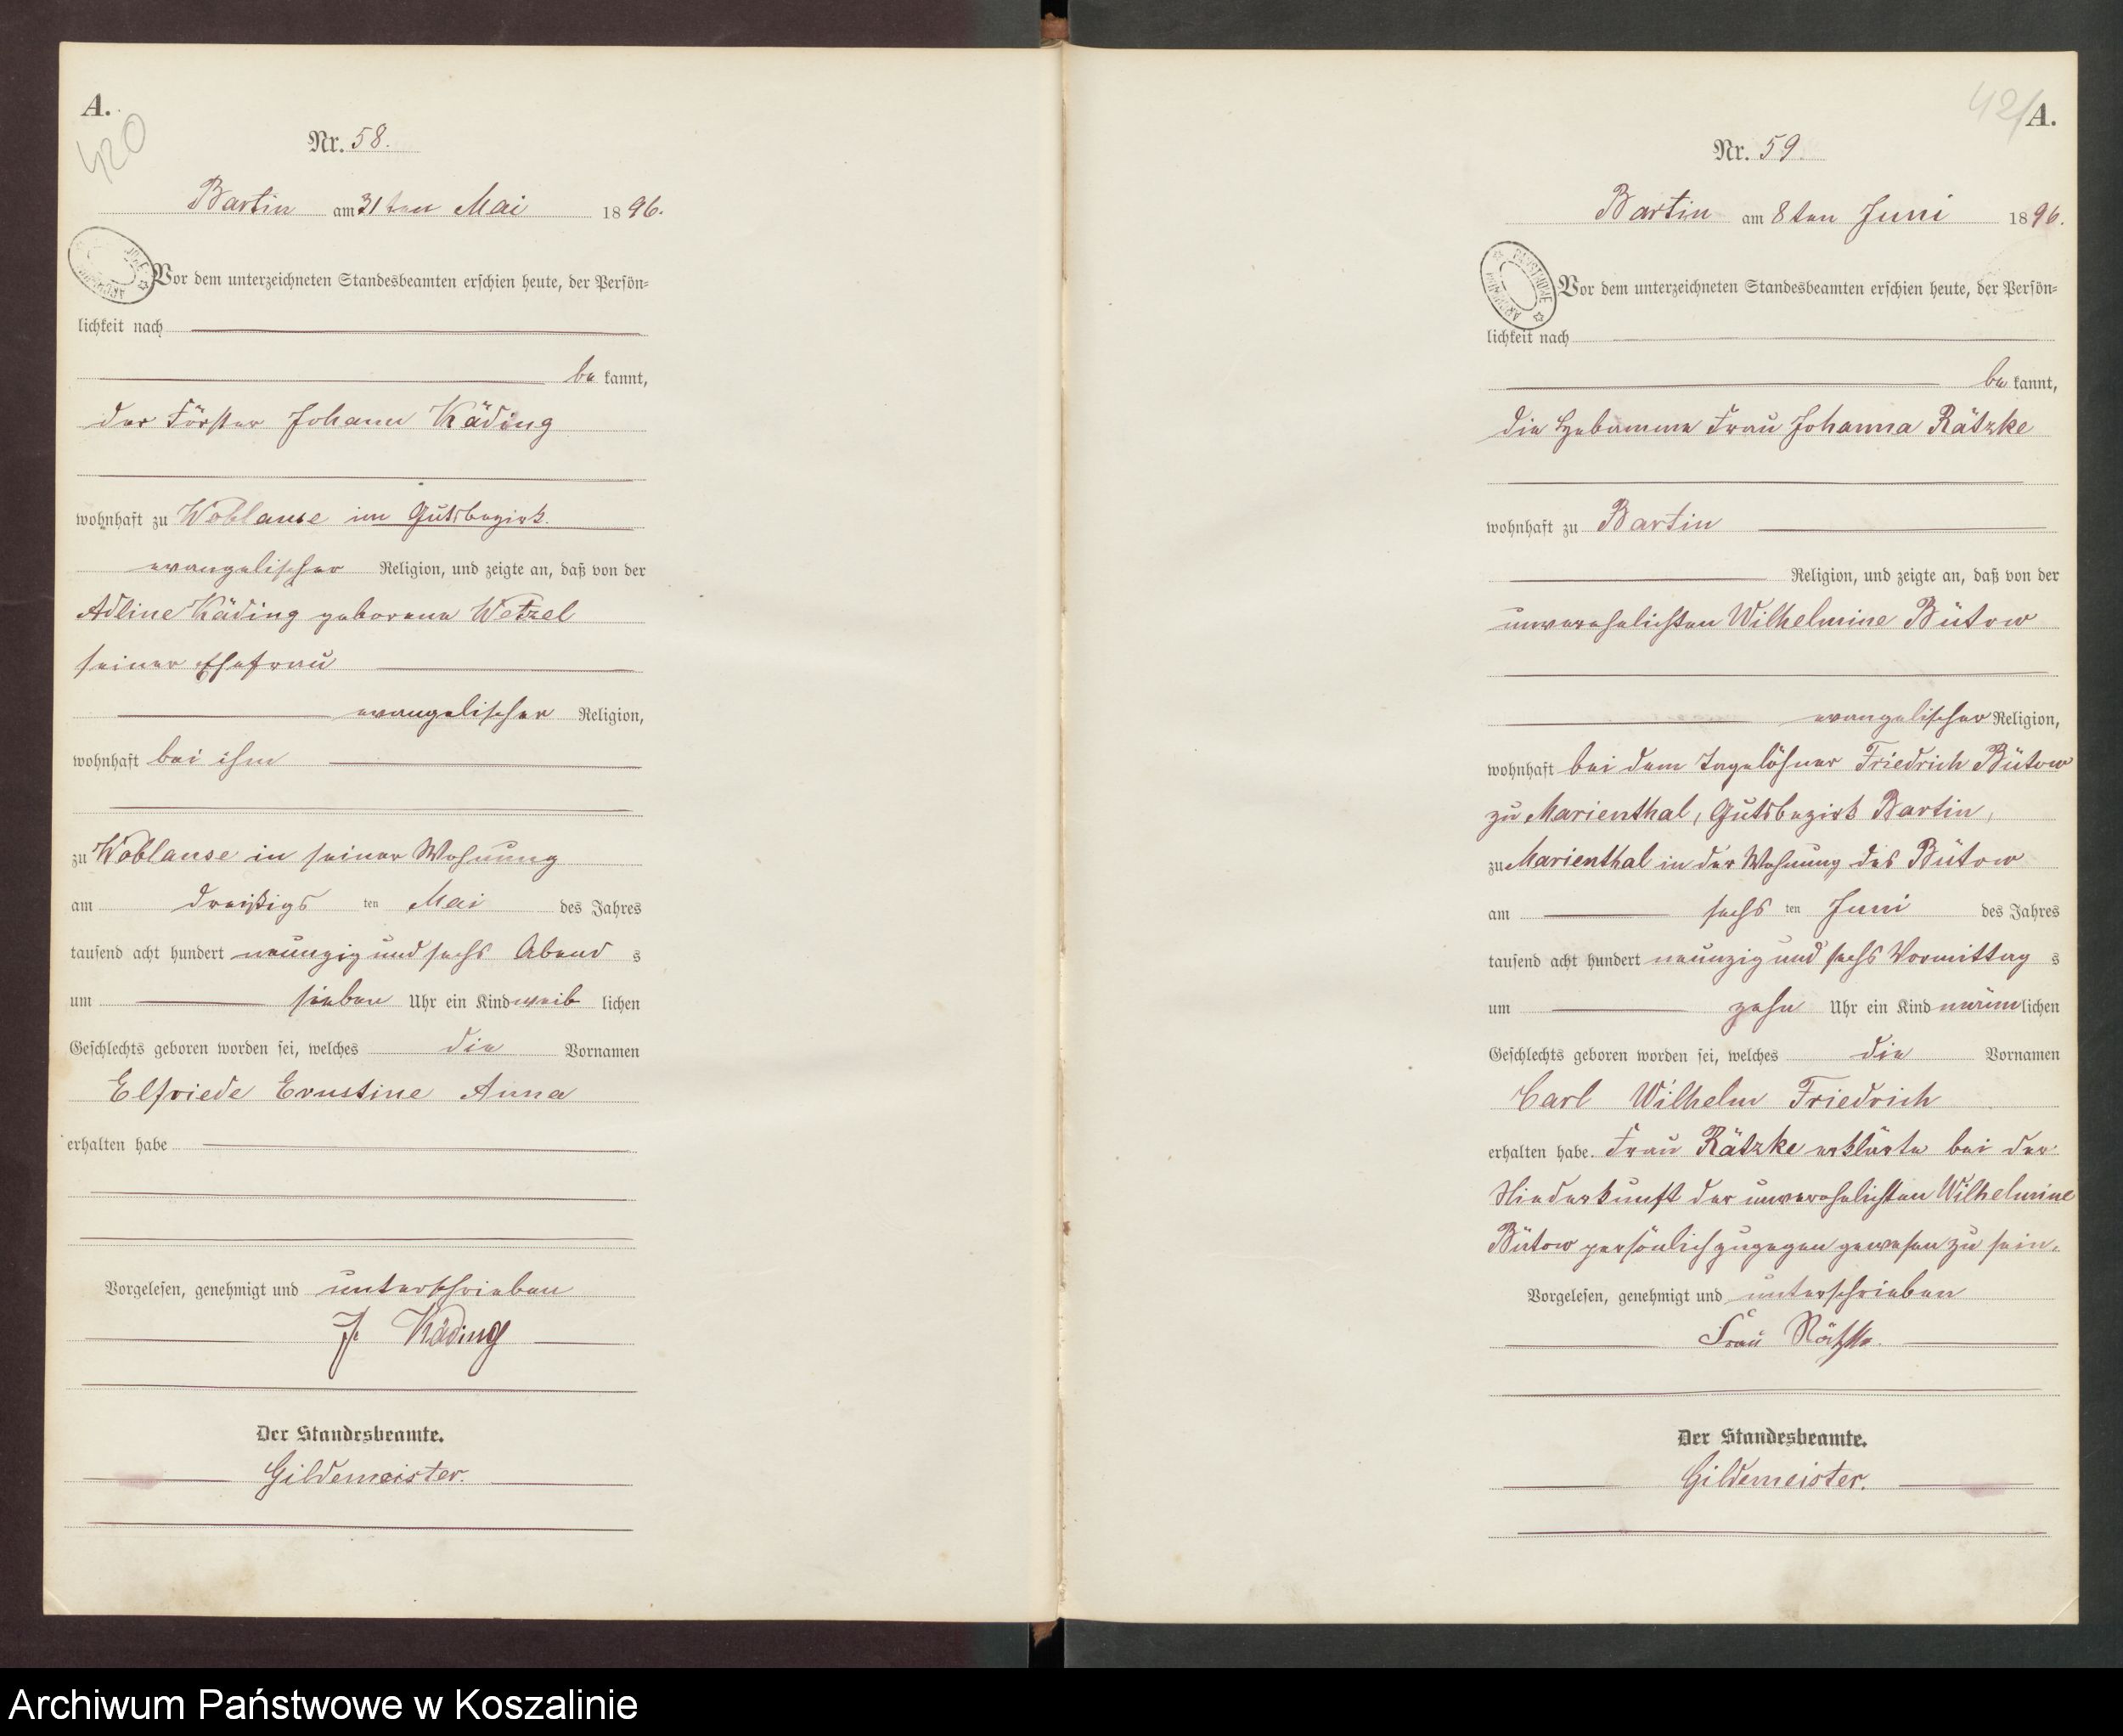 A.
420
Nr. 58.
Bartin am 31ten Mai 1896.
Vor dem unterzeichneten Standesbeamten erschien heute, der Persön-
lichkeit nach
bekannt,
der Förster Johann Käding
wohnhaft zu Woblanse im Gutsbezirk.
evangelischer Religion, und zeigte an, daß von der
Adline Käding geborene Wetzel
seiner Ehefrau
evangelischer Religion,
wohnhaft bei ihm
zu Woblanse in seiner Wohnung
am dreißigs ten Mai des Jahres
tausend acht hundert neunzig und sechs Abend s
um sieben Uhr ein Kind weib lichen
Geschlechts geboren worden sei, welches die Vornamen
Elfriede Ernstine Anna
erhalten habe
Vorgelesen, genehmigt und unterschrieben
J. Käding
Der Standesbeamte.
Gildemeister.
421
A.
Nr. 59.
Bartin am 8ten Juni 1896.
Vor dem unterzeichneten Standesbeamten erschien heute, der Persön-
lichkeit nach
bekannt,
die Hebamme Frau Johanna Rätzke
wohnhaft zu Bartin
Religion, und zeigte an, daß von der
unverehelichten Wilhelmine Bütow
evangelischer Religion,
wohnhaft bei dem Tagelöhner Friedrich Bütow
zu Marienthal, Gutsbezirk Bartin,
zu Marienthal in der Wohnung des Bütow
am sechs ten Juni des Jahres
tausend acht hundert neunzig und sechs Vormittag s
um zehn Uhr ein Kind männlichen
Geschlechts geboren worden sei, welches die Vornamen
Carl Wilhelm Friedrich
erhalten habe. Frau Rätzke erklärte bei der
Niederkunft der unverehelichten Wilhelmine
Bütow persönlich zugegen gewesen zu sein.
Vorgelesen, genehmigt und unterschrieben
Frau Rätzke.
Der Standesbeamte.
Gildemeister.
Archiwum Państwowe w Koszalinie